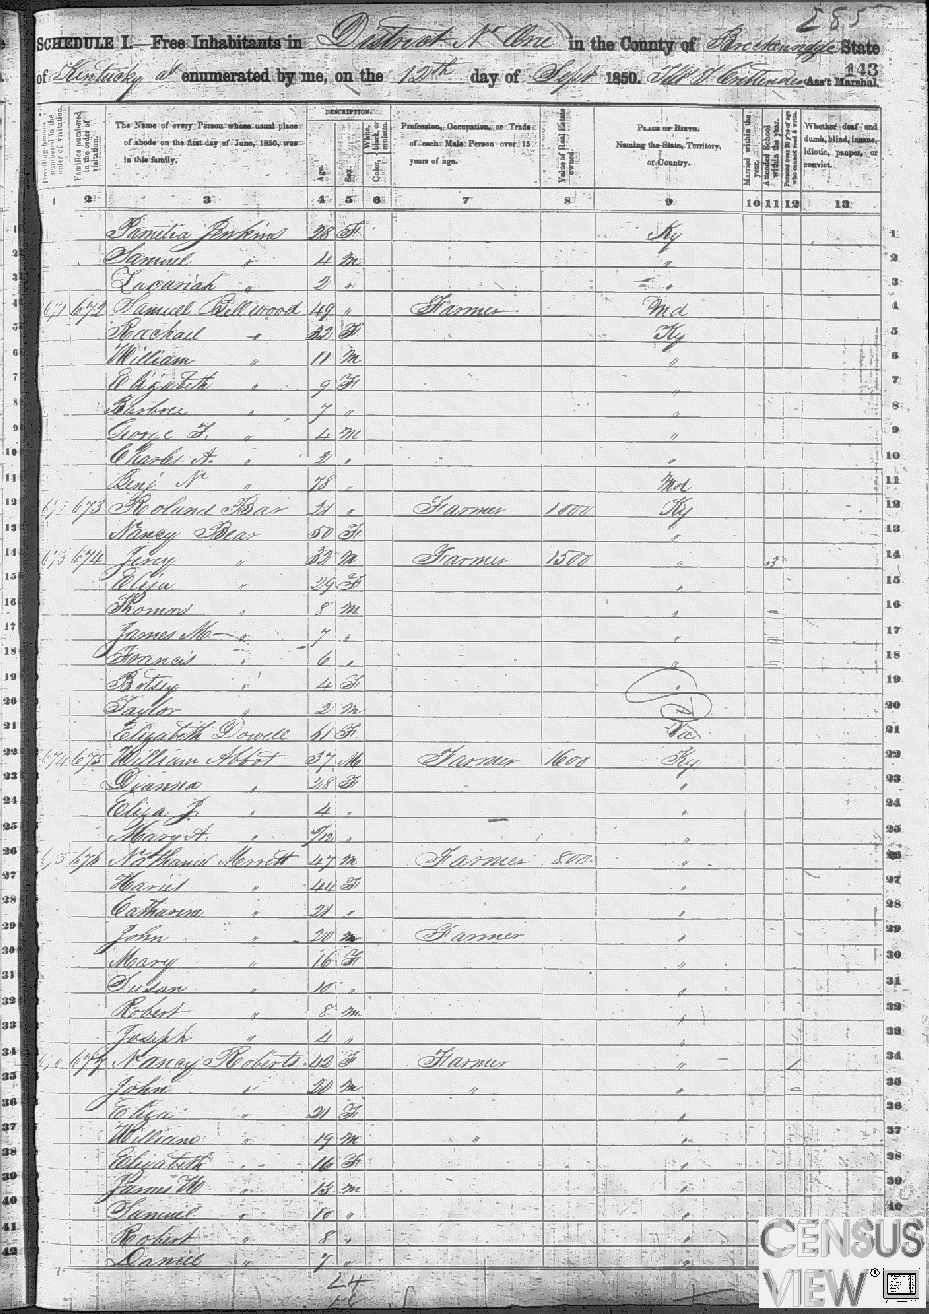 285
SCHEDULE I.—Free Inhabitants in District No One in the County of Breckenridge State
of Kentucky enumerated by me, on the 12th day of Sept 1850. Ass't Marshal.
143
DESCRIPTION.
Dwelling-houses numbered in the order of visitation.
Families numbered in the order of visitation.
The Name of every Person whose usual place of abode on the first day of June, 1850, was in this family.
Age.
Sex.
White, black, or mulatto.
Color,
Profession, Occupation, or Trade of each Male Person over 15 years of age.
Value of Real Estate owned.
PLACE OF BIRTH. Naming the State, Territory, or Country.
Married within the year.
Attended School within the year.
Persons over 20 y'rs of age who cannot read & write.
Whether deaf and dumb, blind, insane, idiotic, pauper, or convict.
1 2 3 4 5 6 7 8 9 10 11 12 13
1 Jenkins 28 F Ky 1
2 Samuel " 4 m " 2
3 Zacariah " 2 " " 3
4 672 Samuel 49 " Farmer Md 4
5 Rachael " 32 F Ky 5
6 William " 11 m " 6
7 Elizabeth " 9 F " 7
8 " 7 " " 8
9 George F. " 4 m " 9
10 Charles A. " 2 " " 10
11 Benj N " 78 " Md 11
12 673 Roland Bear 21 " Farmer 1000 Ky 12
13 Nancy Bear 50 F " 13
14 673 674 " 32 m Farmer 1500 " 14
15 Eliza " 29 F " 15
16 Thomas " 8 m " 16
17 James M " 7 " " 17
18 Francis " 6 " " 18
19 Betsey " 4 F " 19
20 Taylor " 2 m " 20
21 Elizabeth Dowell 61 F Va 21
22 674 675 William Abbot 37 M Farmer 1600 Ky 22
23 Dianna " 28 F " 23
24 Eliza J. " 4 " " 24
25 Mary A. " /12 " " 25
26 675 676 Nathaniel Merrett 47 m Farmer 800 " 26
27 Hariet " 44 F " 27
28 Catharine " 21 " " 28
29 John " 20 m Farmer " 29
30 Mary " 16 F " 30
31 Susan " 10 " " 31
32 Robert " 8 m " 32
33 Joseph " 4 " " 33
34 677 Nancy Roberts 42 F Farmer " 34
35 John " 20 m " " 35
36 Eliza " 21 F " 36
37 William " 19 m " " 37
38 Elizabeth " 16 F " 38
39 James W " 13 m " 39
40 Samuel " 10 " " 40
41 Robert " 8 " "
42 Daniel " 7 " "
24
CENSUS
VIEW®